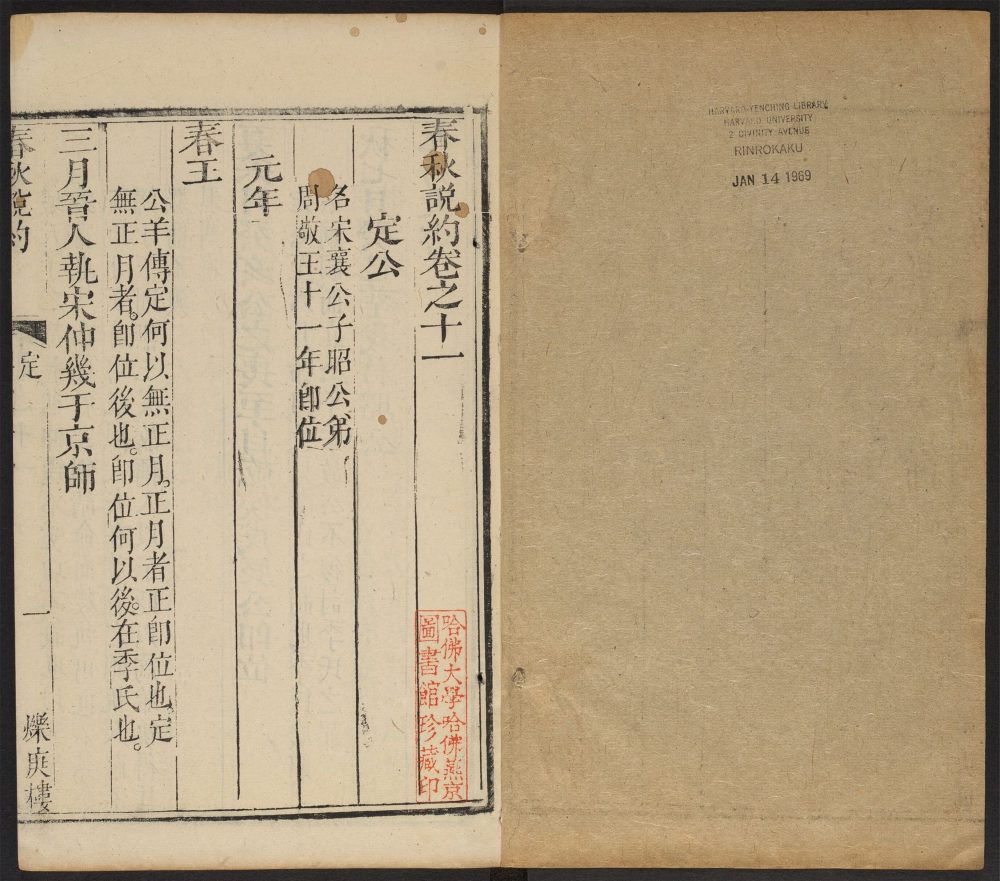 HARVARD-YENCHING LIBRARY
HARVARD UNIVERSITY
2 DIVINITY AVENUE
RINROKAKU
JAN 14 1969
春秋説約卷之十一
哈佛大學哈佛燕京
圖書館珍藏印
定公
名宋襄公子昭公弟
周敬王十一年卽位
元年
春王
公羊傳定何以無正月。正月者正卽位也。定
無正月者。卽位後也。卽位何以後。在季氏也。
三月晉人執宋仲幾于京師
春秋説約
定
一
樓